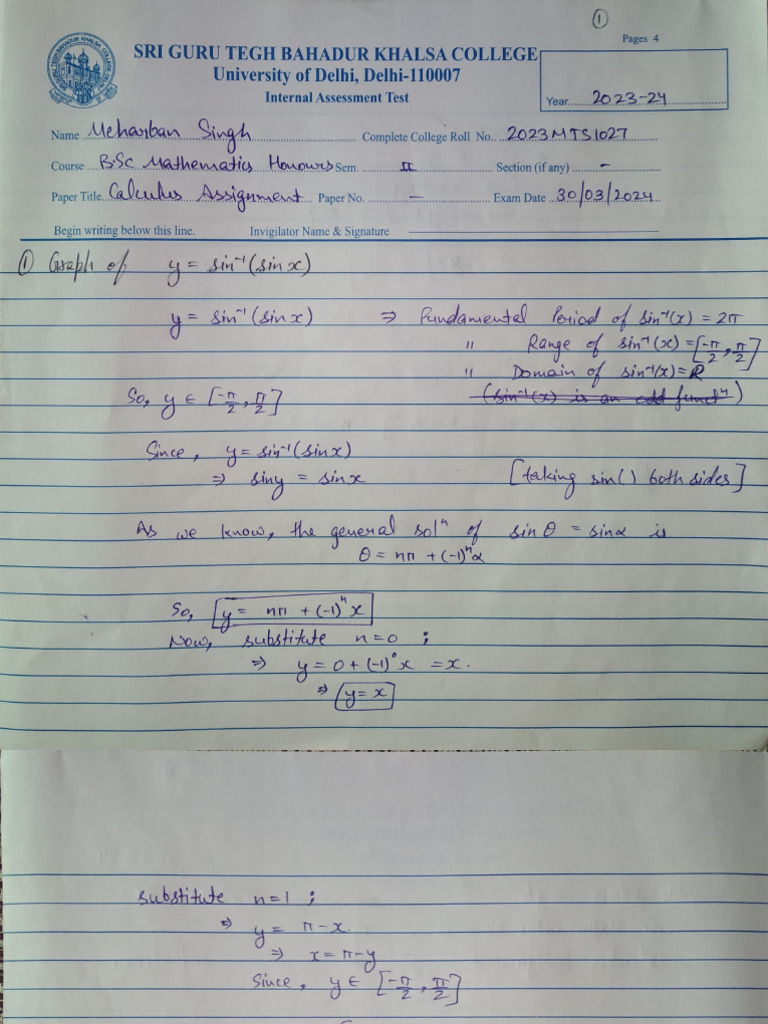 ①
Pages 4
SRI GURU TEGH BAHADUR KHALSA COLLEGE
University of Delhi, Delhi-110007
Internal Assessment Test
Year 2023-24
Name Meharban Singh Complete College Roll No. 2023MTS1027
Course B.Sc Mathematics Honours Sem. II Section (if any) -
Paper Title Calculus Assignment Paper No. - Exam Date 30/03/2024
Begin writing below this line. Invigilator Name & Signature
① Graph of y = sin⁻¹(sin x)
y = sin⁻¹(sin x) ⇒ Fundamental Period of sin⁻¹(x) = 2π
" Range of sin⁻¹(x) = [-π/2, π/2]
" Domain of sin⁻¹(x) = R
So, y ∈ [-π/2, π/2] (sin⁻¹(x) is an odd functⁿ)
Since, y = sin⁻¹(sin x)
⇒ sin y = sin x [taking sin() both sides]
As we know, the general solⁿ of sin θ = sin α is
θ = nπ + (-1)ⁿα
So, y = nπ + (-1)ⁿ x
Now, substitute n=0 ;
⇒ y = 0 + (-1)⁰x = x.
⇒ y = x
substitute n=1 ;
⇒ y = π - x.
⇒ x = π - y
Since, y ∈ [-π/2, π/2]